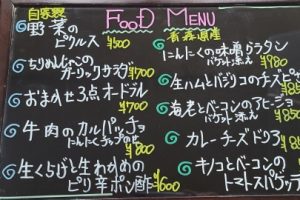 FOOD MENU
自家製
野菜の
ピクルス ¥500
ちりめんじゃこの
ガーリックサラダ ¥700
おまかせ3点オードブル
¥1700
牛肉のカルパッチョ
にんにくチップのせ ¥800
生くらげと生わかめの
ピリ辛ポン酢 ¥600
青森県産
にんにくの味噌グラタン
バケット添え ¥8
生ハムとバジリコのチーズピ
¥85
海老とベーコンのアヒージョ
バケット添え ¥85
カレーチーズドリア
¥85
キノコとベーコンの
トマトスパゲッティ